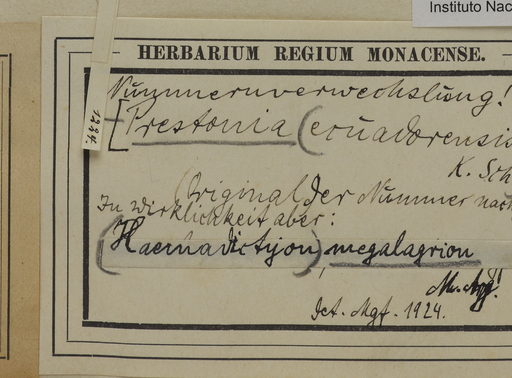 Instituto Nac
HERBARIUM REGIUM MONACENSE.
Nummernverwechslung!
[Prestonia (ecuadorensis
K. Sch
(Original der Nummer nach
In Wirklichkeit aber:
(Haemadictyon) megalagrion
Det. Mgf. 1924.